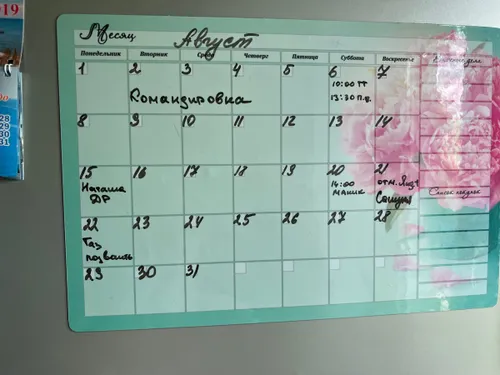 19
28
29
30
31
Месяц Август
Понедельник Вторник Среда Четверг Пятница Суббота Воскресенье
1 2 3 4 5 6 7
10:00
Командировка 13:30
8 9 10 11 12 13 14
15 16 17 18 19 20 21
Наташа 14:00
ДР маник
22 23 24 25 26 27 28
Газ
позвонить
Список покупок
29 30 31